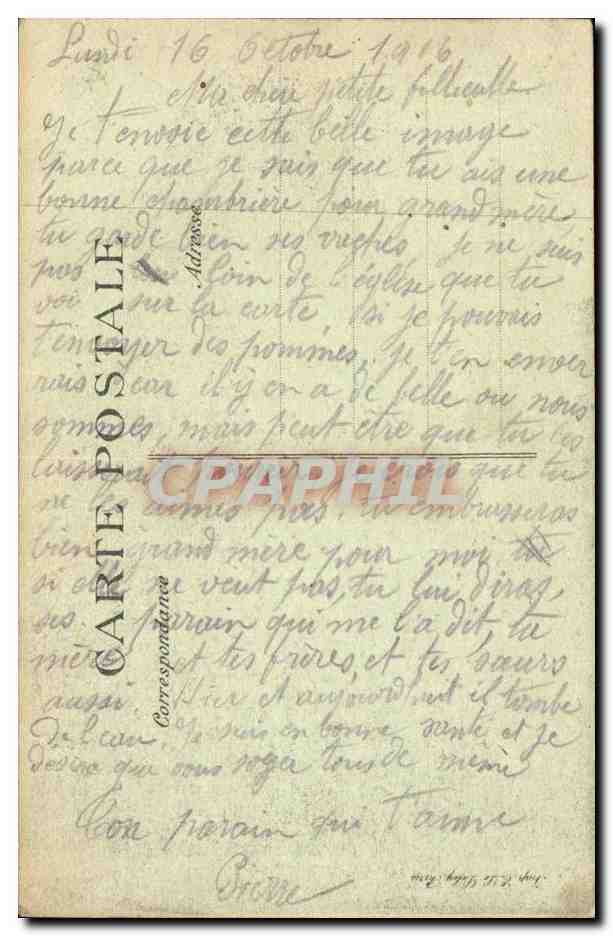 Lundi 16 Octobre 1916
Ma chère petite fillieulle
Je t'envoie cette belle image
parce que je sais que tu ais une
bonne chambrière pour grand mère,
tu garde bien ses vaches. Je ne suis
pas loin de l'église que tu
voi sur la carte, si je pouvais
t'envoyer des pommes, je t'en enver
rais car il y en a de belle ou nous
sommes, mais peut être que tu
que tu
ne les aimes pas, tu embrasseras
bien grand mère pour moi
si elle ne veut pas, tu lui diras,
parain qui me l'a dit, ta
mère et tes frères, et tes sœurs
aussi. Hier et aujourdhui il tombe
de l'eau. Je suis en bonne santé et je
desire que vous soyez tous de même
Ton parain qui t'aime
Pierre
CARTE POSTALE
Correspondance
Adresse
CPAPHIL